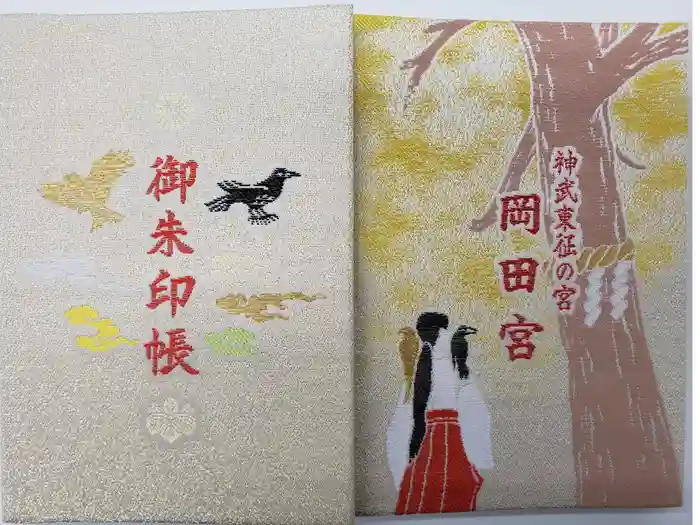 御朱印帳
神武東征の宮
岡田宮